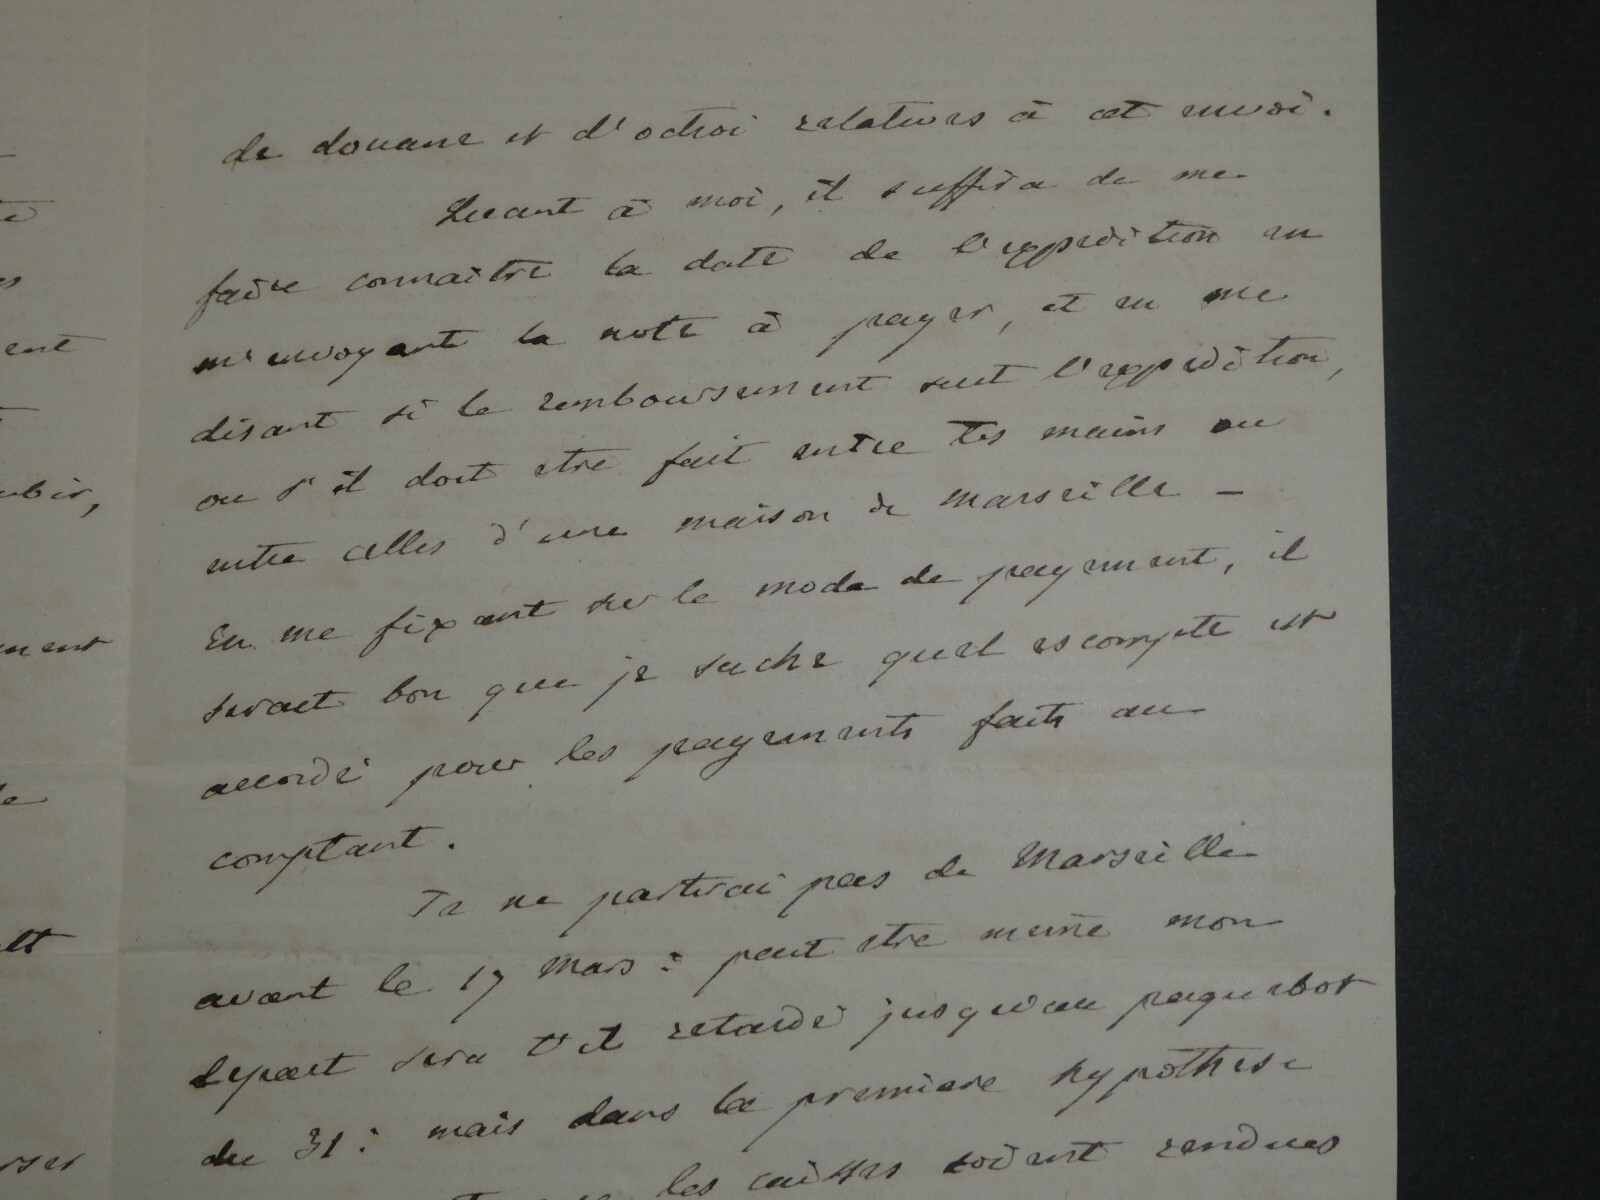 de douane et d'octroi relatives à cet envoi.
Quant à moi, il suffira de me
faire connaître la date de l'expédition en
m'envoyant la note à payer, et en me
disant si le remboursement suit l'expédition,
ou s'il doit etre fait entre tes mains ou
entre celles d'une maison de Marseille —
En me fixant sur le mode de payement, il
serait bon que je sache quel escompte est
accordé pour les payements faits au
comptant.
Je ne partirai pas de Marseille
avant le 17 Mars : peut etre meme mon
depart sera t'il retardé jusqu'au paquebot
du 31 : mais dans la premiere hypothese
les caisses soient rendues
ent
ubir,
ment